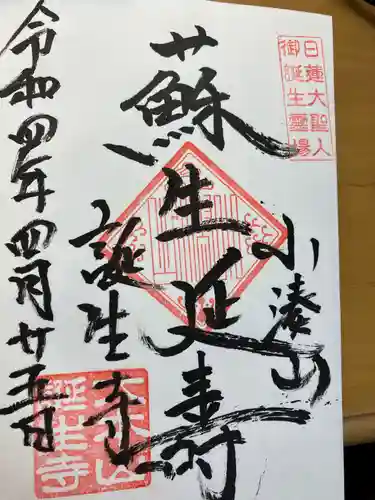 日蓮大聖人
御誕生霊場
小湊山
蘇生延寿
誕生寺
令和四年四月廿五日
小湊山
誕生寺